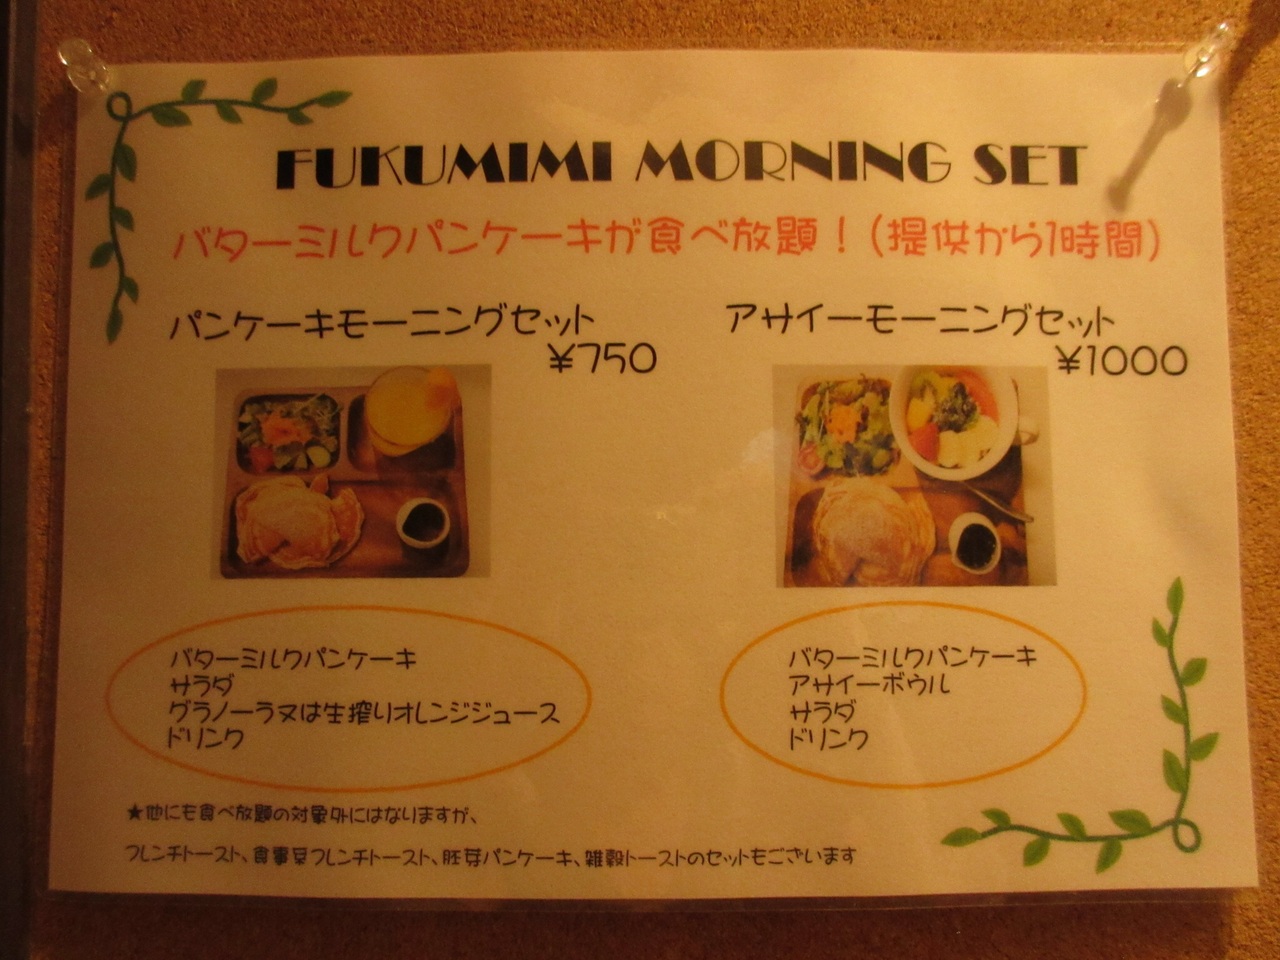 FUKUMIMI MORNING SET
バターミルクパンケーキが食べ放題！(提供から1時間)
パンケーキモーニングセット
¥750
アサイーモーニングセット
¥1000
バターミルクパンケーキ
サラダ
グラノーラ又は生搾りオレンジジュース
ドリンク
バターミルクパンケーキ
アサイーボウル
サラダ
ドリンク
★他にも食べ放題の対象外にはなりますが、
フレンチトースト、食事系フレンチトースト、胚芽パンケーキ、雑穀トーストのセットもございます